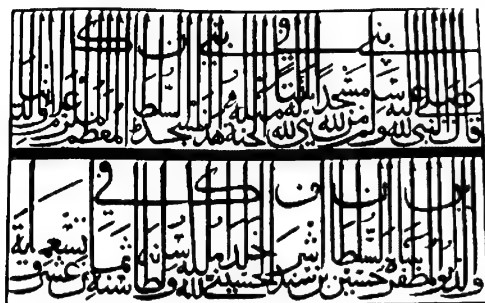 قال النبي صلى الله عليه وسلم من بنى مسجدا لله بنى الله له بيتا مثله في الجنة بنى هذا المسجد السلطان المعظم المكرم علاء الدنيا
والدين ابو المظفر حسين شاه السلطان بن سيد اشرف الحسيني خلد الله ملكه وسلطانه في سنة ثمان عشر وتسعماية